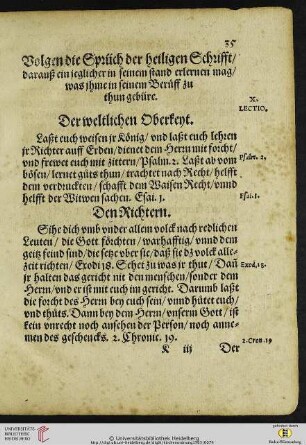 35
Volgen die Sprüch der heiligen Schrifft/
darauß ein jeglicher in seinem stand erlernen mag/
was jhme in seinem Berüff zu
thun gebüre.
X.
LECTIO.
Der weltlichen Oberkeyt.
Laßt euch weisen jr König/ vnd laßt euch lehren
jr Richter auff Erden/dienet dem Herrn mit forcht/
vnd frewet euch mit zittern/Psalm.2. Laßt ab vom
Psalm. 2.
bösen/lernet güts thun/ trachtet nach Recht/ helfft
dem verdruckten/ schafft dem Waisen Recht/vnnd
helfft der Witwen sachen. Esai. 1.
Esai.1.
Den Richtern.
Sihe dich vmb vnder allem volck nach redlichen
Leuten/ die Gott förchten/ warhafftig/ vnnd dem
geitz feind sind/die setze vber sie/daß sie dz volck alle-
zeit richten/ Exodi 18. Sehet zu was jr thut/ Dañ
Exod.18.
jr halten das gericht nit den menschen/sonder dem
Herrn/vnd er ist mit euch im gericht. Darumb laßt
die forcht des Herrn bey euch sein/ vnnd hütet euch/
vnd thüts. Dann bey dem Herrn/vnserm Gott/ ist
kein vnrecht noch ansehen der Person/ noch anne-
men des geschencks. 2. Chronic. 19.
2.Cron.19
K iij Der
UNIVERSITÄTS-
BIBLIOTHEK
HEIDELBERG
© Universitätsbibliothek Heidelberg
gefördert durch
Baden-Württemberg